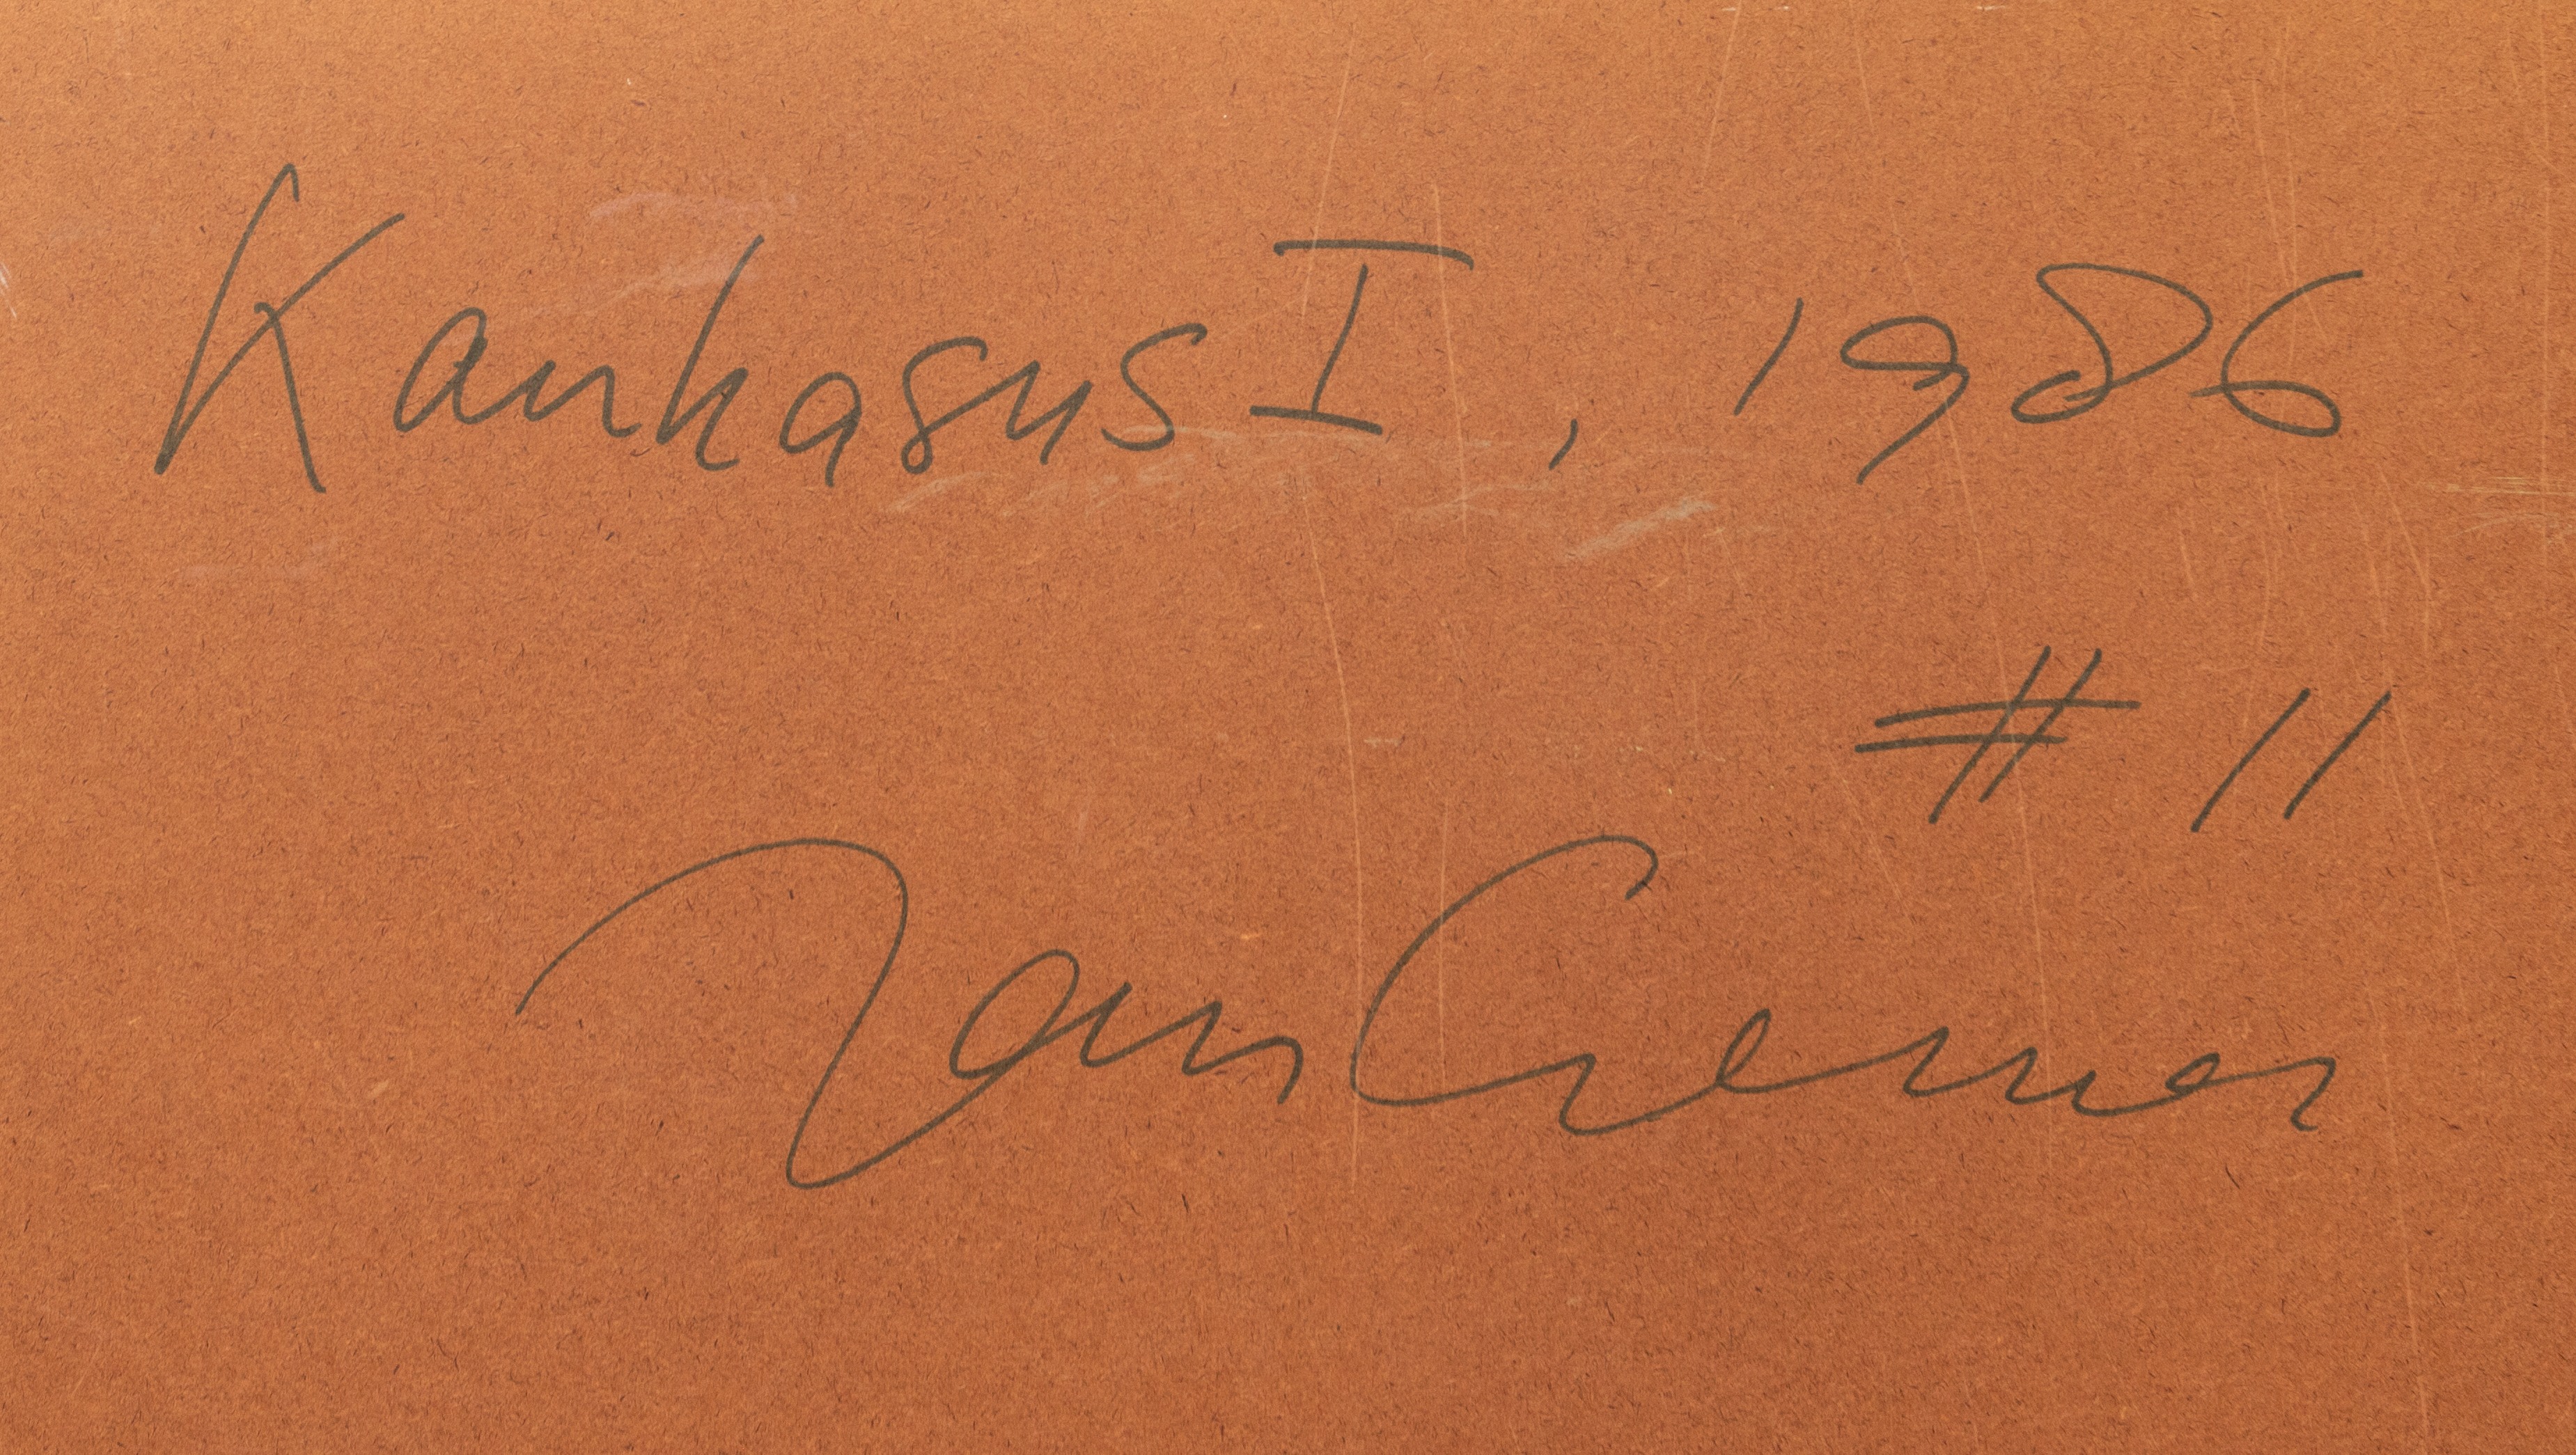 Kaukasus I, 1986
# 11
Jan Cremer